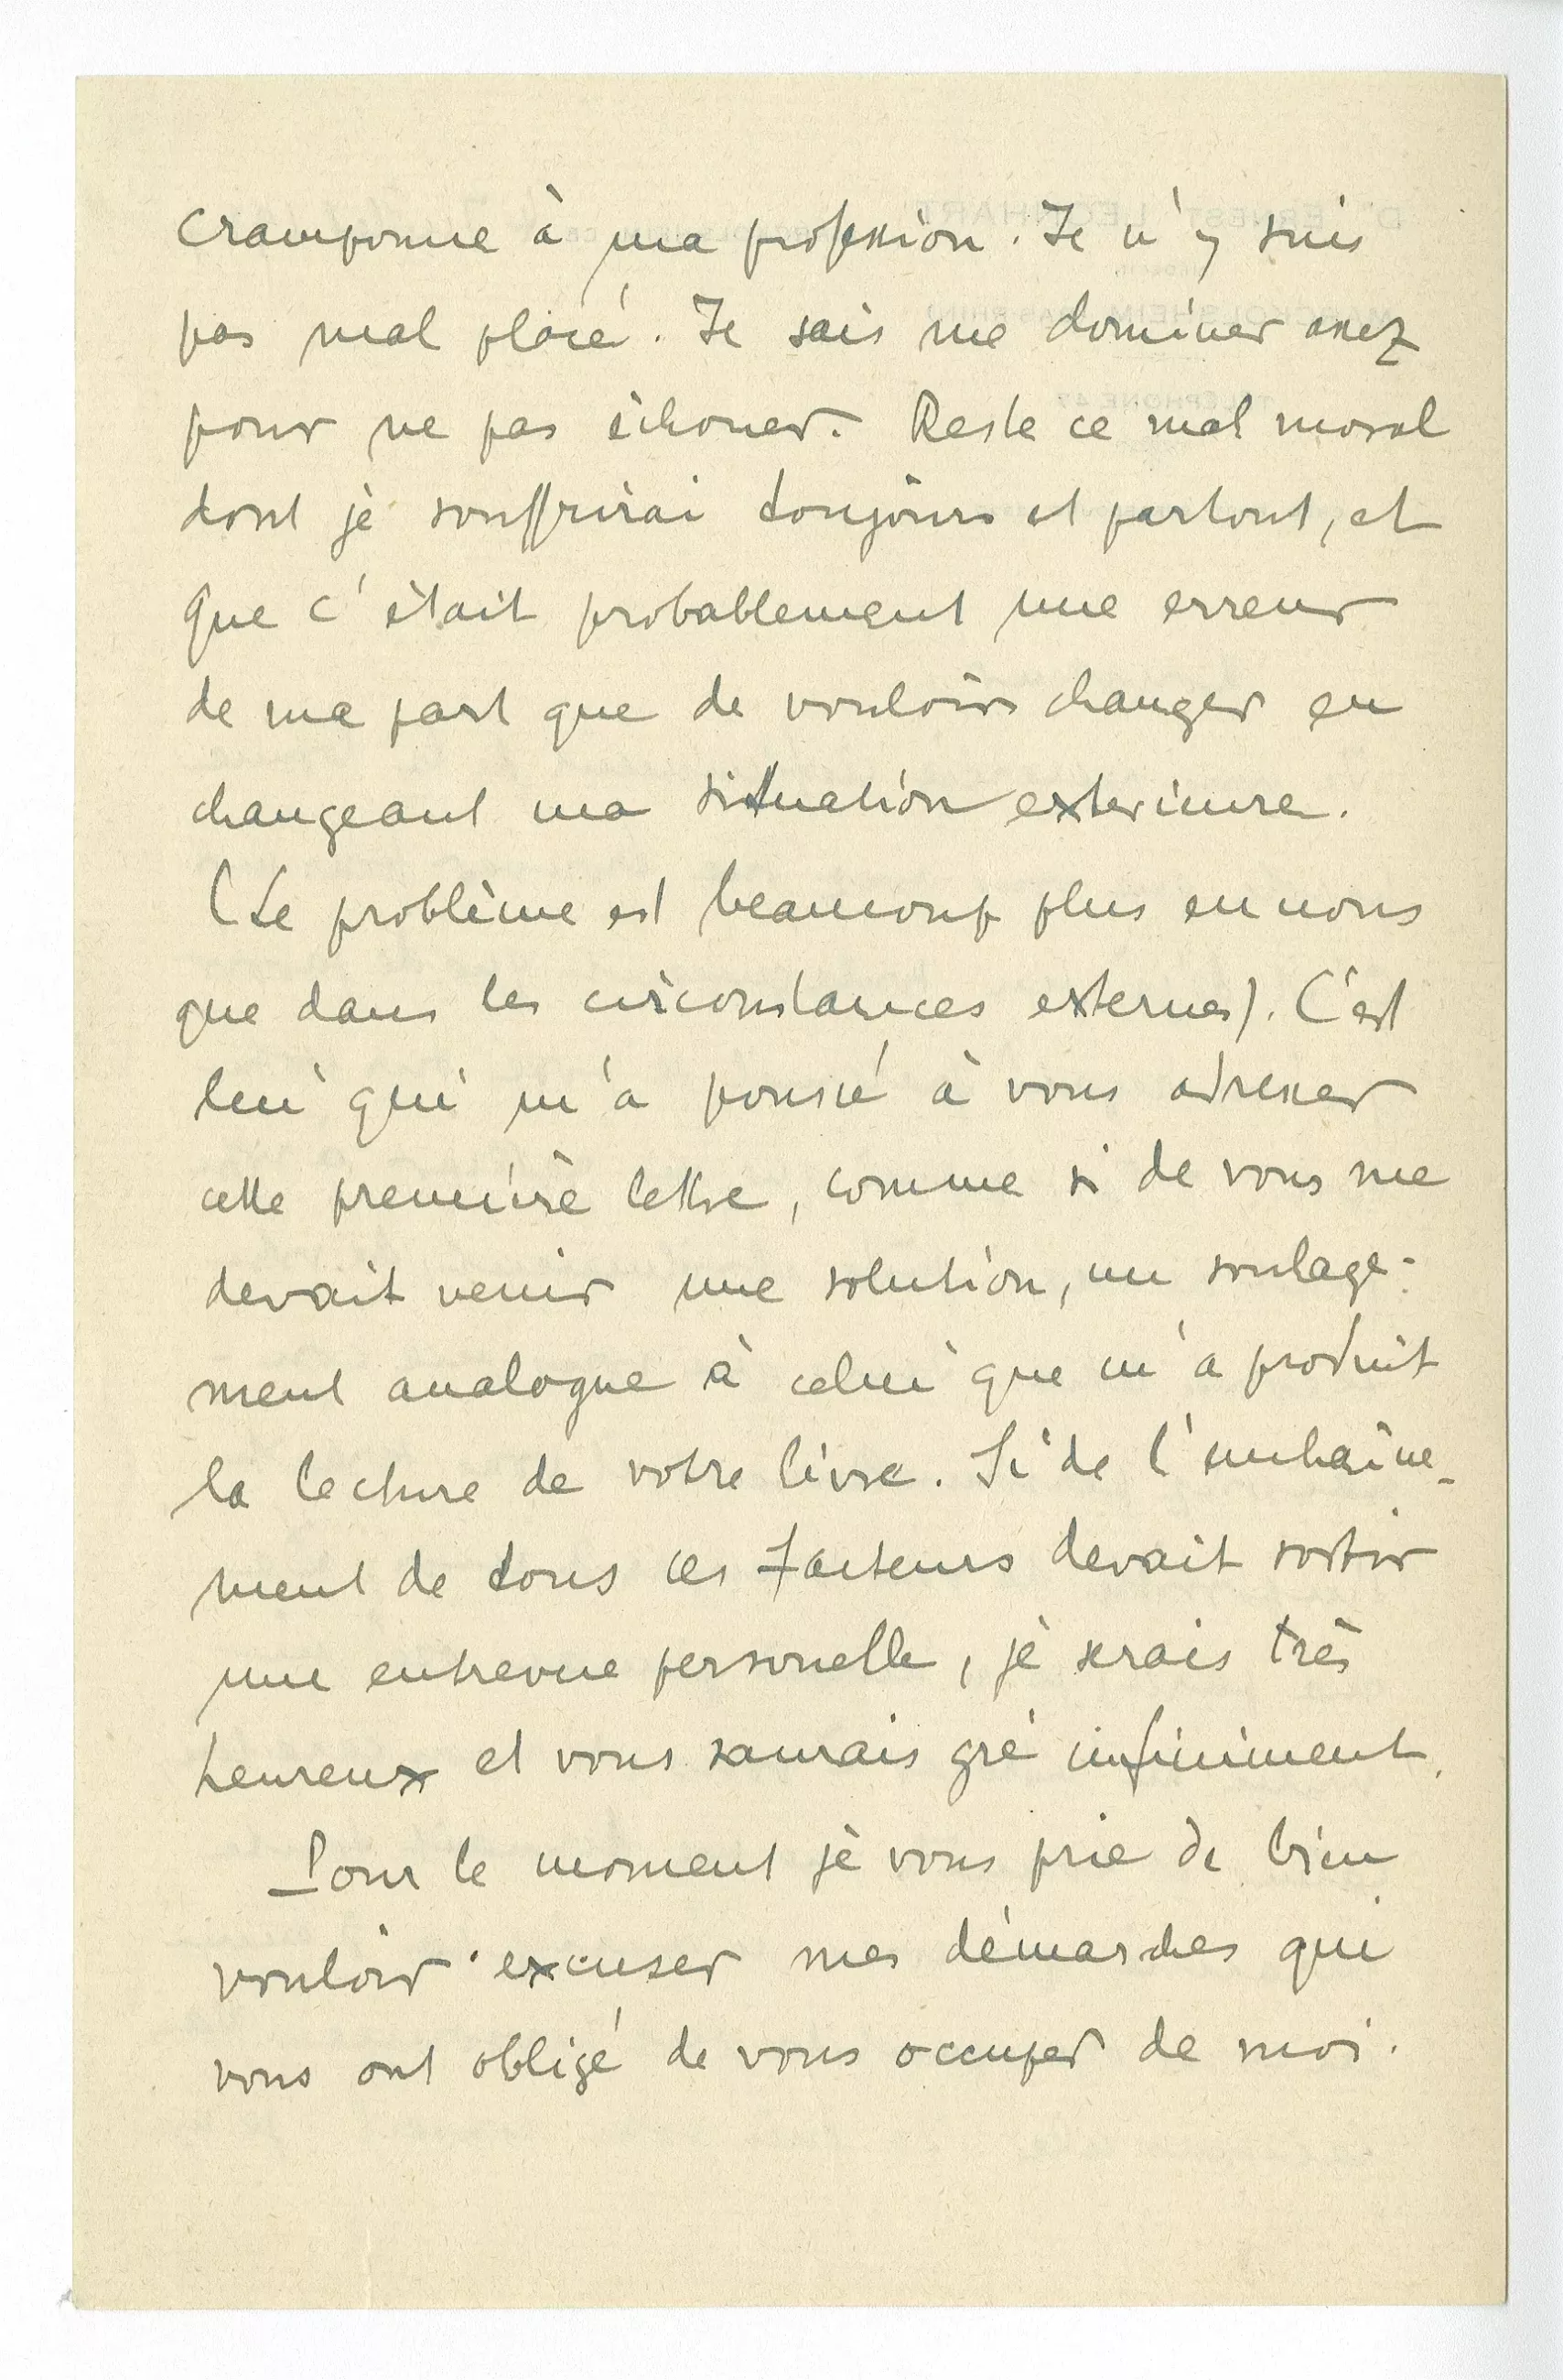 cramponne à ma profession. Je n'y suis
pas mal placé. Je sais me dominer assez
pour ne pas échouer. Reste ce mal moral
dont je souffrirai toujours et partout, et
que c'était probablement une erreur
de ma part que de vouloir changer en
changeant ma situation exterieure.
(Le problème est beaucoup plus en nous
que dans les circonstances externes). C'est
lui qui m'a poussé à vous adresser
cette première lettre, comme si de vous me
devait venir une solution, un soulage-
ment analogue à celui que m'a produit
la lecture de votre livre. Si de l'enchaîne-
ment de tous ces facteurs devait sortir
une entrevue personelle, je serais très
heureux et vous saurais gré infiniment.
Pour le moment je vous prie de bien
vouloir excuser mes démarches qui
vous ont obligé de vous occuper de moi.